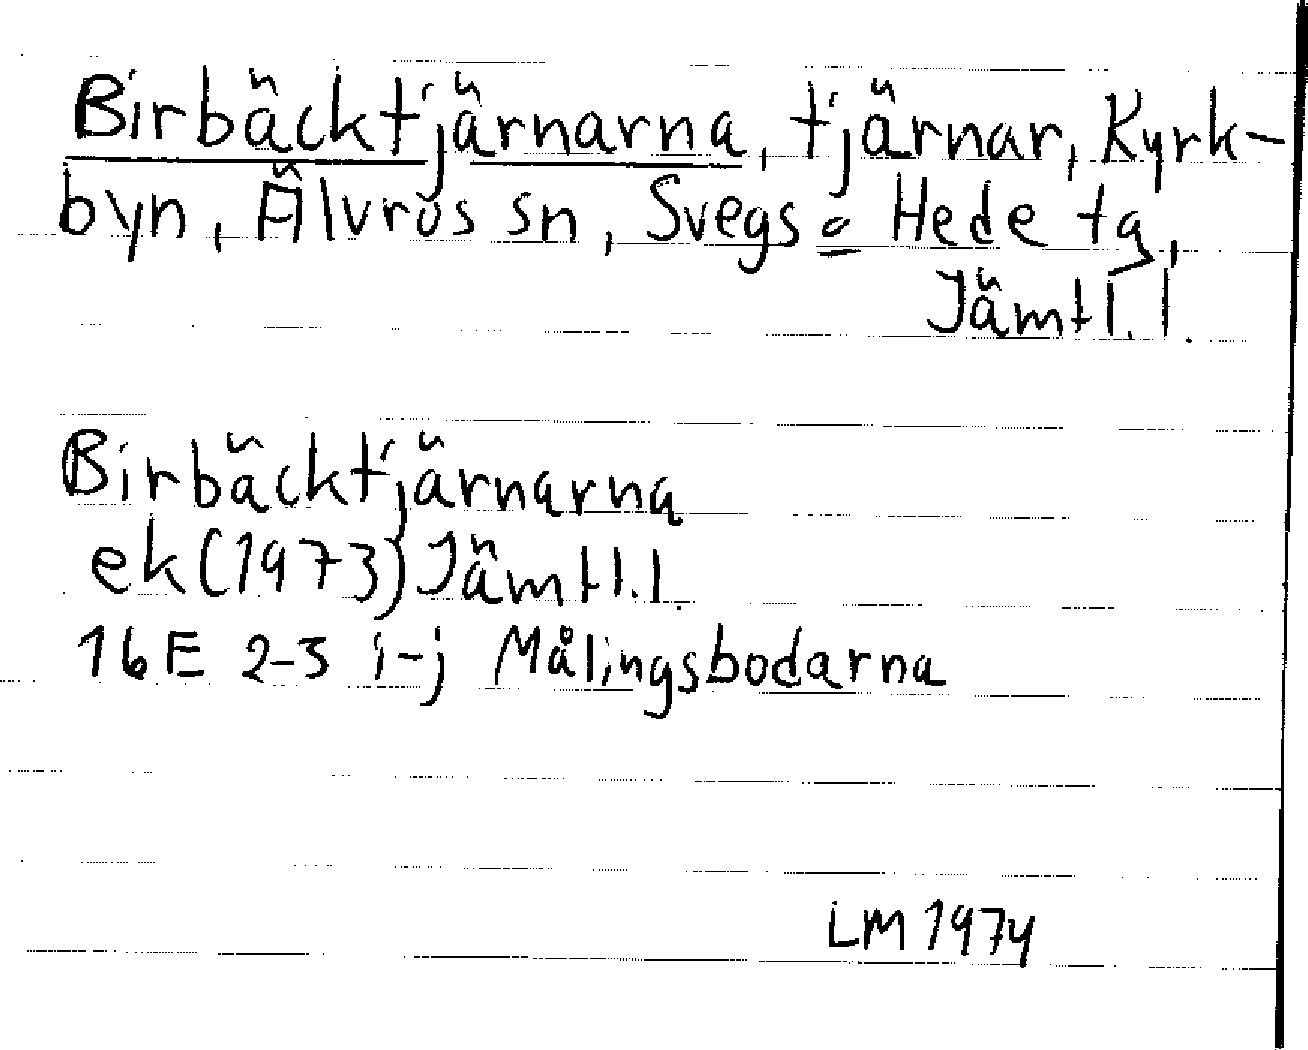 Birbäcktjärnarna, tjärnar, Kyrk-
byn, Älvros sn, Svegs o Hede tg,
Jämtl. l.
Birbäcktjärnarna
ek (1973) Jämtl.l.
16E 2-3 i-j Målingsbodarna
LM 1974